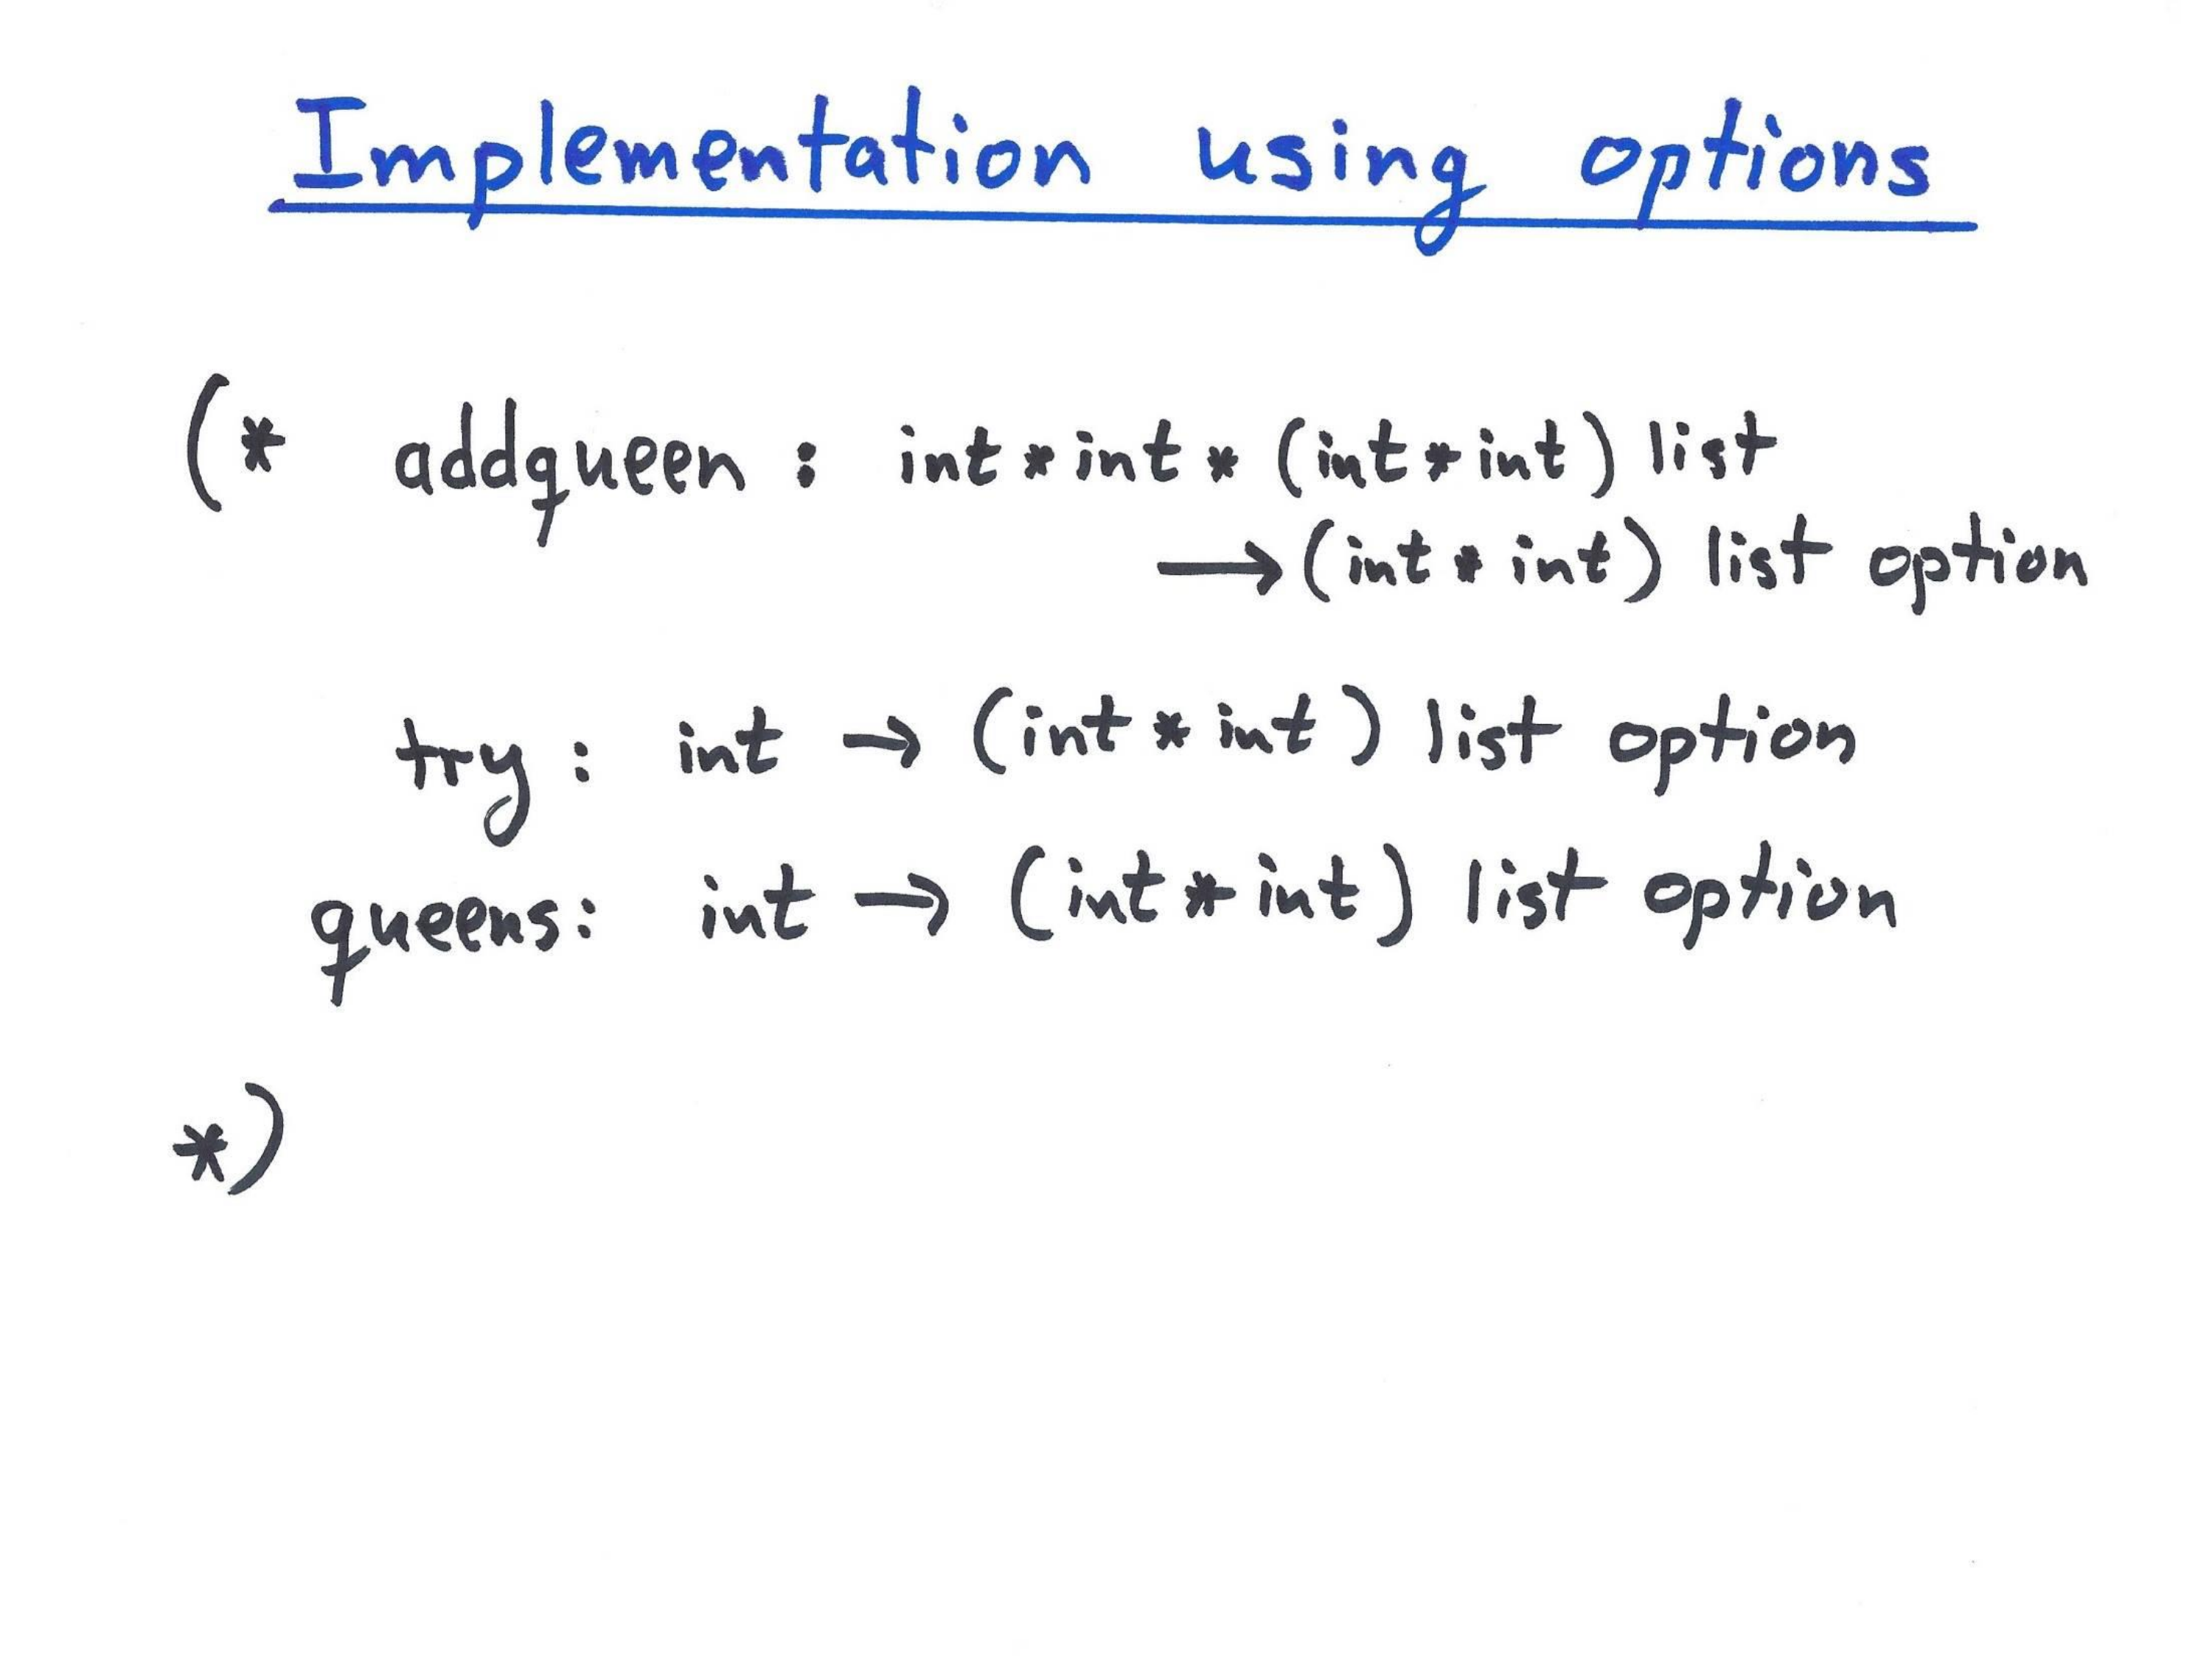 Implementation using options
(* addqueen : int * int * (int * int) list
→ (int * int) list option
try : int → (int * int) list option
queens: int → (int * int) list option
*)